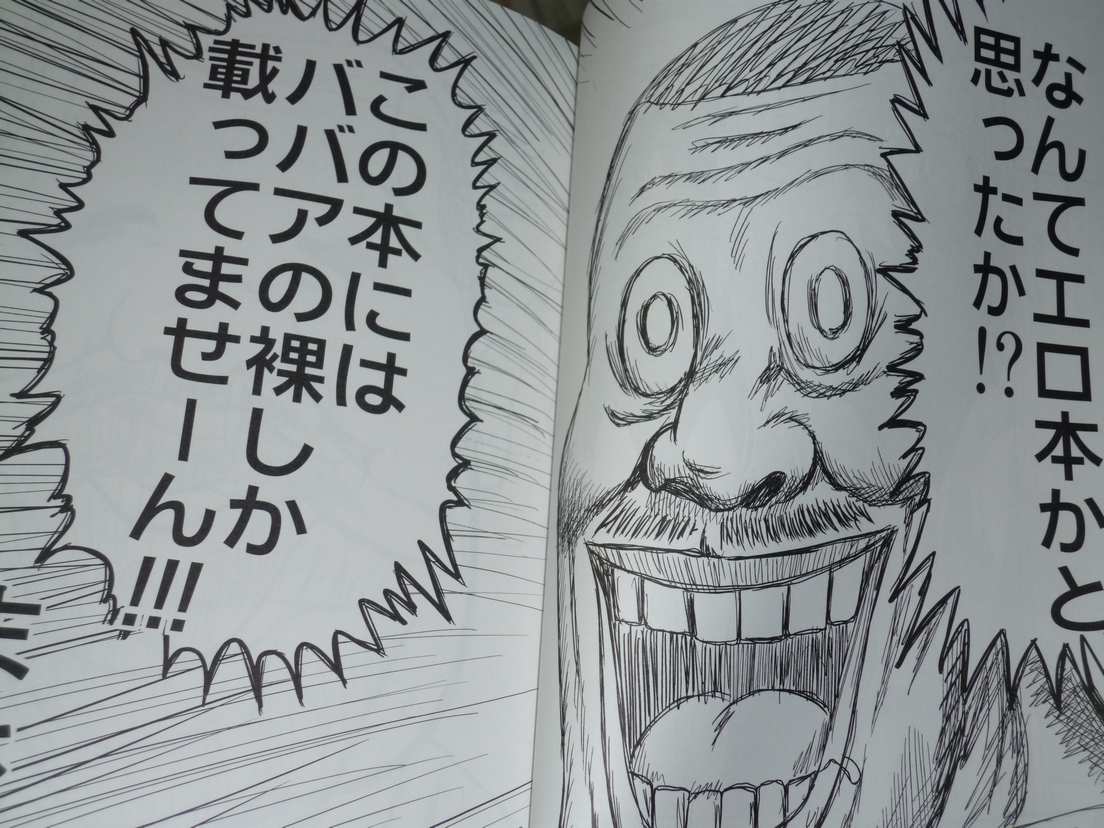 なんてエロ本かと
思ったか!?
この本には
ババアの裸しか
載ってませーん!!!